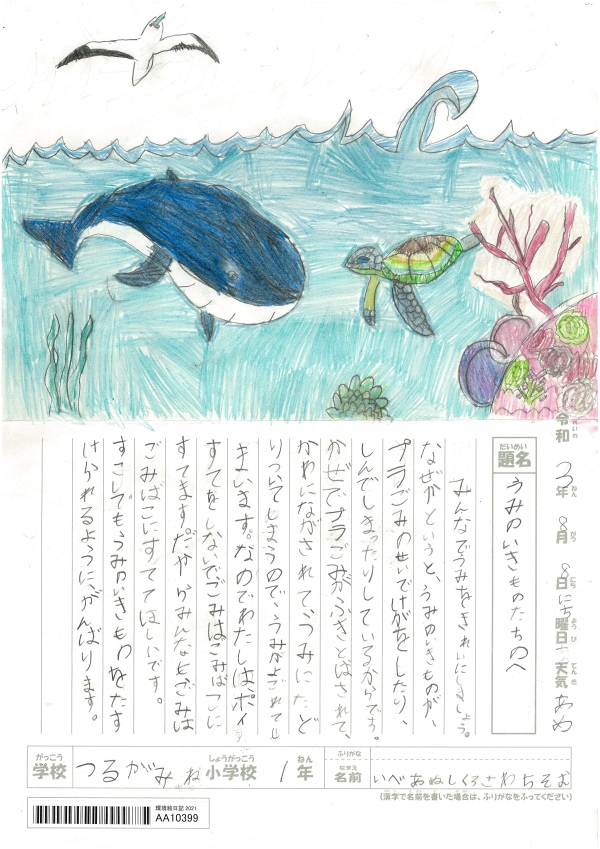 令和 3年 8月 8日 にち曜日 天気 あめ
だいめい
題名
うみのいきものたちのへ
みんなでうみをきれいにしましょう。
なぜかというと、うみのいきものが、
プラごみのせいでけがをしたり、
しんでしまったりしているからです。
かぜでプラごみがふきとばされて、
かわにながされて、うみにたど
りついてしまうので、うみがよごれてし
まいます。なのでわたしは、ポイ
すてをしないでごみはごみばこに
すてます。だからみんなもごみは
ごみばこにすててほしいです。
すこしでもうみのいきものをたす
けられるように、がんばります。
がっこう しょうがっこう ねん ふりがな
学校 つるがみね 小学校 1年
なまえ
名前
(漢字で名前を書いた場合は、ふりがなをふってください)
環境絵日記 2021
AA10399